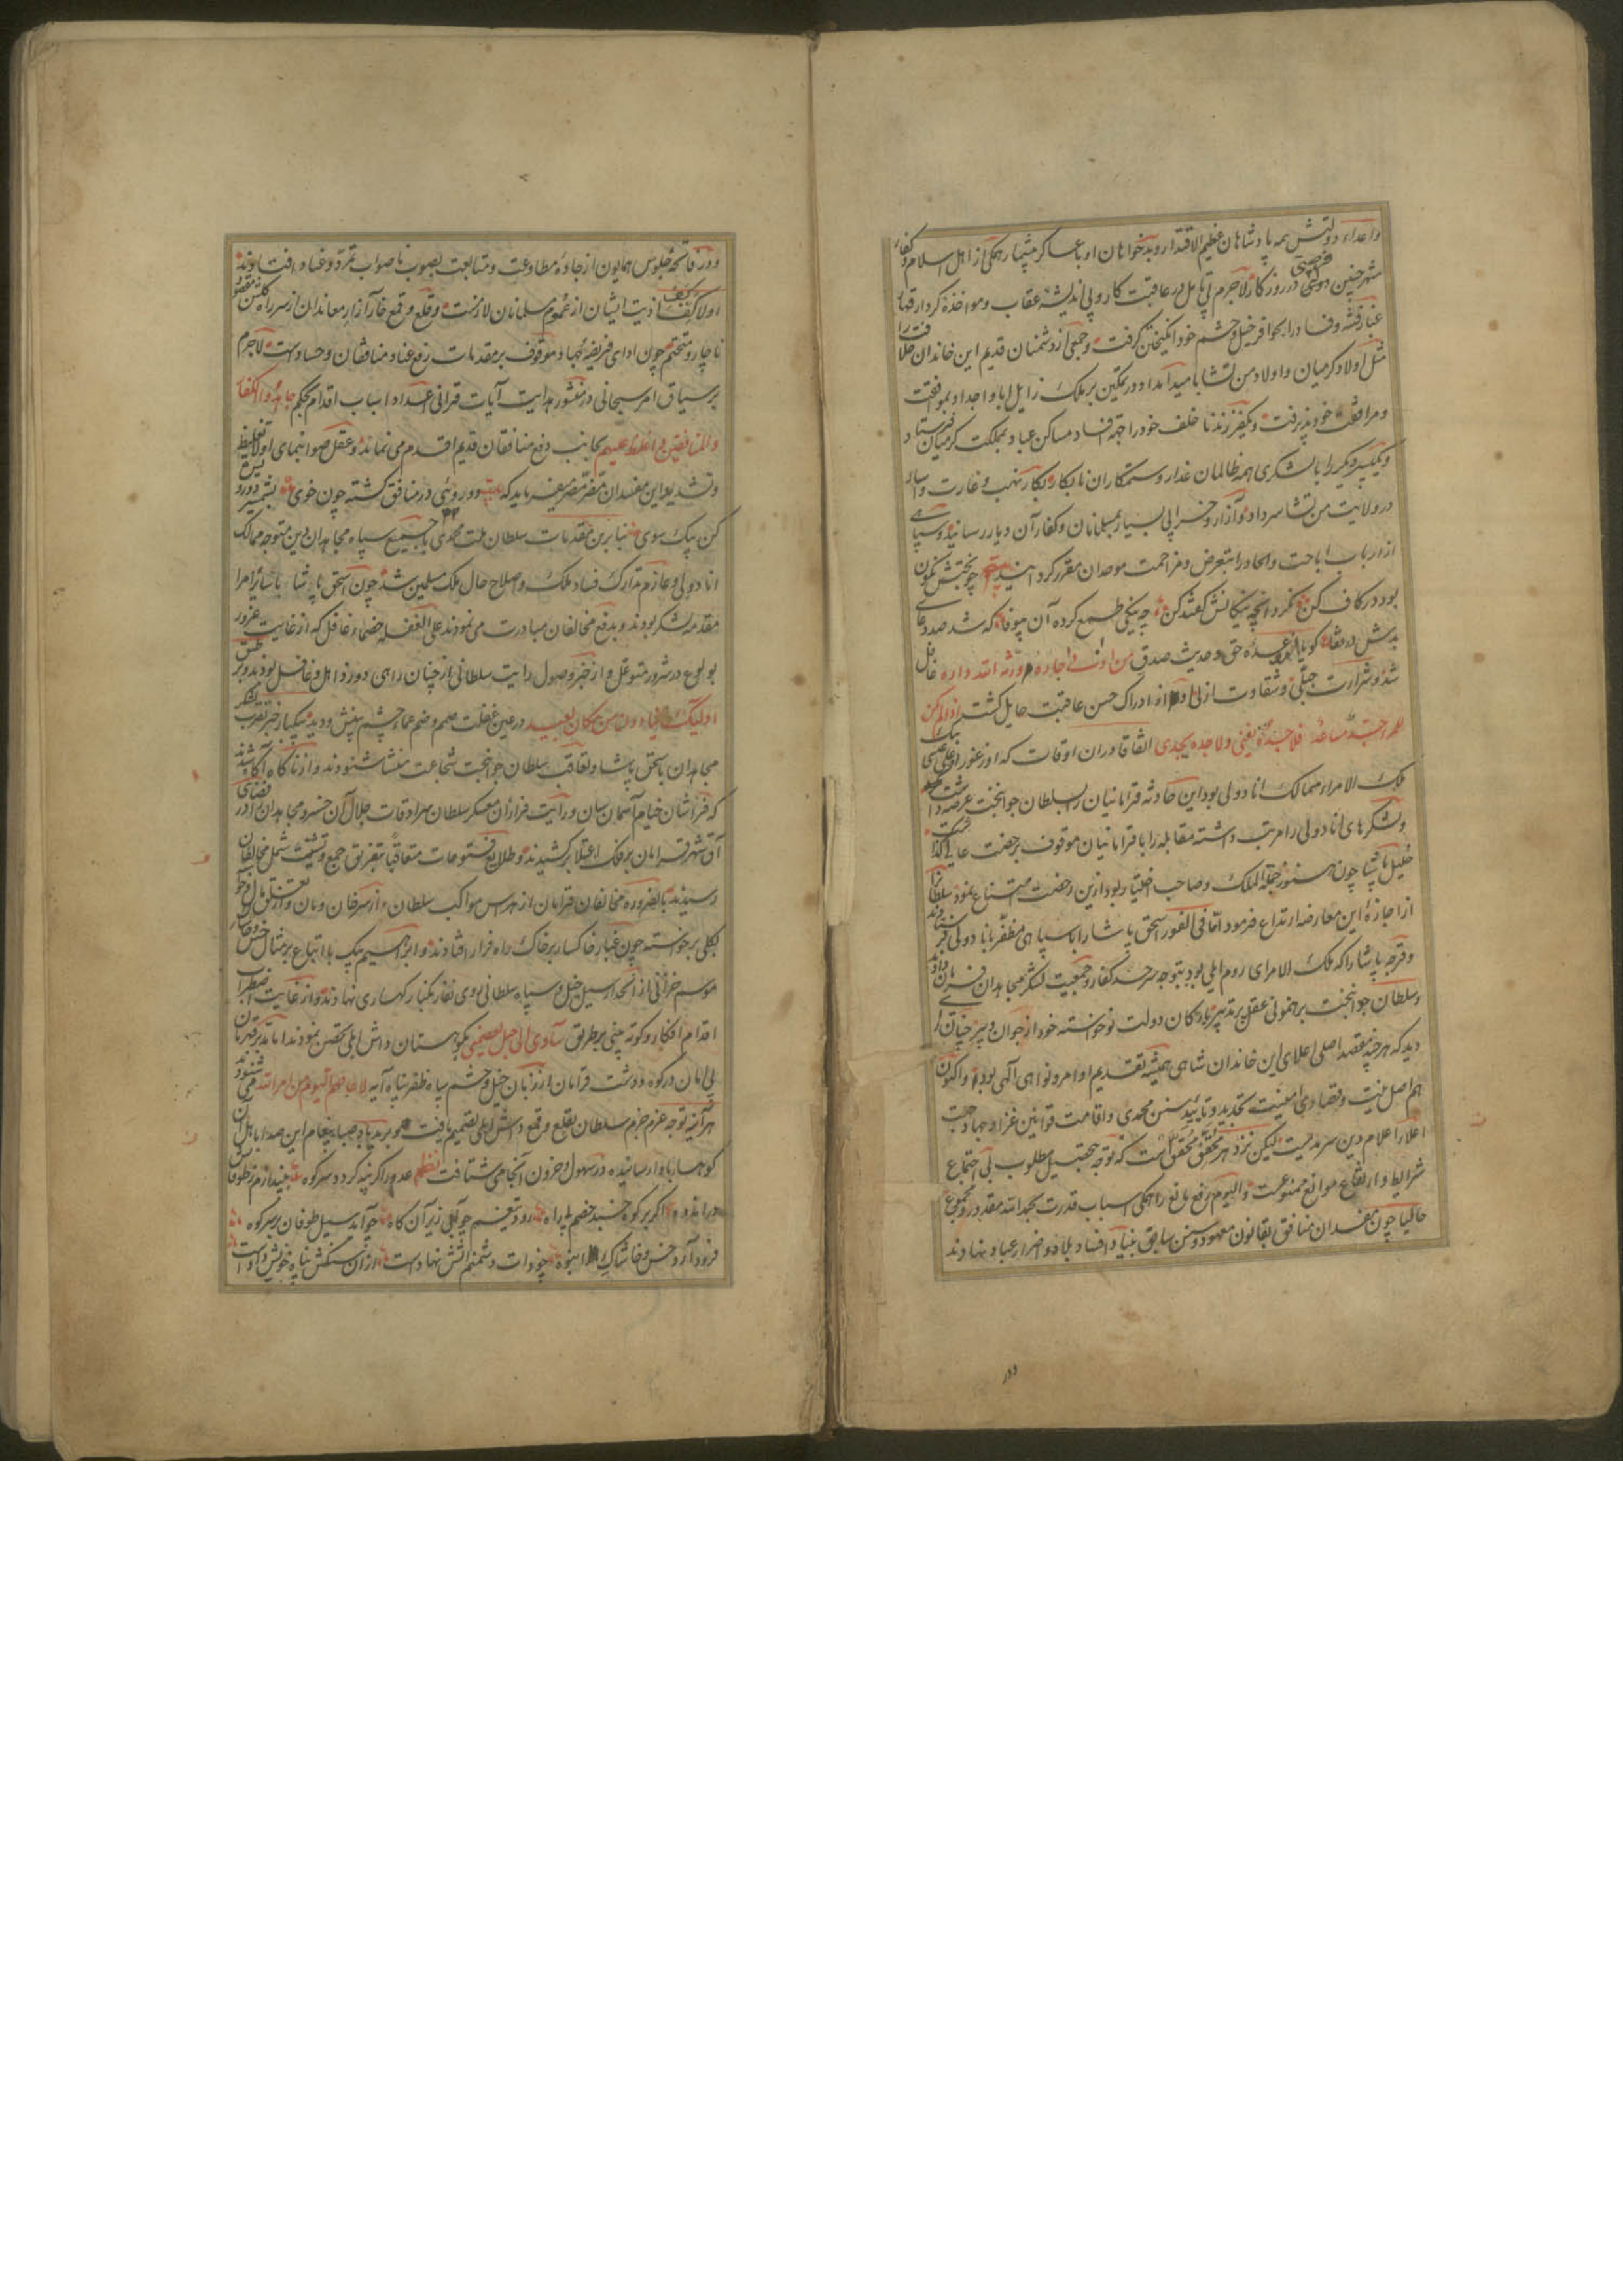 واعداء دولتش همه پادشاهان عظیم الاقتدار و بدخواهان او با عساکر بیشمار همکی از اهل اسلام و کفار
منتهز چنین فرصتی در روزکار لاجرم بی تامل در عاقبت کار و بی اندیشهٔ عقاب و مواخذهٔ کردار قهار
غبار فتنه و فساد را بحوافر خیل و حشم خود انکیختن کرفت و جمعی از دشمنان قدیم این خاندان خلافت را
مثل اولاد کرمیان و اولاد من تشا بامید امداد و تمکین بر ملک زایل ابا و اجداد بموافقت
و مرافقت خود پذیرفت و یکنفر فرزند ناخلف خود را جهة افساد مساکن عباد بمملکت کرمیان فرستاد
و یک پسر دیکر را با لشکری همه ظالمان غدار و ستمکاران نابکار بکار نهب و غارت و
در ولایت من تشا سر داد و آزار و خرابی بسیار بمسلمانان و کفار آن دیار رسانید و سپاهی
از ارباب اباحت و الحاد را بتعرض و مزاحمت موحدان مقرر کردانید چو بختش نکون
بود در کاف کن نکرد انچه نیکانش کفتند کن چه نیکی طمع کرده آن بیوفا که شد صد دعای
بدش در قفا کویا از وعدهٔ حق و حدیث صدق من اذی جاره ورثه الله داره غافل
شد و شرارت جبلی و شقاوت ازلی او از ادراک حسن عاقبت حایل کشت اذا لم یکن
للمرء جد مساعد فلا جده یغنی ولا جده یجدی اتفاقا در ان اوقات که اوزغور اوغلی عیسی بیک
ملک الامراء ممالک انادولی بود این حادثه قرامانیان را بسلطان جوانبخت عرضه داشت
و لشکرهای انادولی را مرتب داشته مقابله را با قرامانیان موقوف برخصت عالی کذاشت
خلیل پاشا چون هنوز جملة الملک و صاحب اختیار بود ازین رخصت امتناع نمود سلطان را
از اجازهٔ این معارضه ارتداع فرمود اما فی الفور اسحق پاشا را با سپاهی مظفر بانادولی فرستادند
و قرجه پاشا را که ملک الامرای روم ایلی بود بتوجه سرحد کفار و جمعیت لشکر مجاهدان فرمان دادند
و سلطان جوانبخت برهنمونی عقل پر تدبیر باارکان دولت نوخواستهٔ خود از جوان و پیر چنان رای
دید که هر چند مقصد اصلی اعلای این خاندان شاهی همیشه تقدیم اوامر و نواهی الهی بوده واکنون
هم اصل نیت و قصاد ای امنیت تجدید و تایید سنن محمدی و اقامت قوانین غزا و جهاد جهت
اعلاء اعلام دین سرمدیست لیکن نزد هر محقق محقق است که توجه بتحصیل مطلوب بی اجتماع
شرایط و ارتفاع موانع ممنوعست والیوم رفع مانع را همکی اسباب قدرت بحمد الله مقدور و مجموع
حالیا چون مفسدان منافق بقانون معهود و سنن سابق بنیاد افساد بلاد و اضرار عباد نهادند
ودر
و در فاتحهٔ جلوس همایون از جادهٔ مطاوعت و متابعت بصوب ناصواب تمرد و عناد افتادند
اولا کف اذیت ایشان از عموم مسلمانان لازمست و قلع و قمع خار آزار معاندان از سر راه کلشن مقصود
ناچار و متحتم چون ادای فریضهٔ جهاد موقوف بر مقدمات رفع عناد منافقان و حساد است لاجرم
بر سیاق امر سبحانی در منشور هدایت آیات قرانی اعداد اسباب اقدام بحکم جاهد الکفار
والمنافقین واغلظ علیهم بجانب دفع منافقان قدیم اقدم می نماید و عقل صوابنمای اولا تغلیظ
و تشدید این مفسدان مقرر میفرماید که بیت دو رویی در منافق کشته چون خوی بشمشیر دو رویش
کن یک سوی بنا برین مقدمات سلطان ملت محمدی با جمیع سپاه مجاهدان دین متوجه ممالک
انادولی و عازم تدارک فساد ملک و اصلاح حال ملک مسلمین شد چون اسحق پاشا با سایر امرا
مقدمه لشکر بودند و بدفع مخالفان مبادرت می نمودند علی الغفله خصماء غافل که از غایت غرور
بولوع در شرور متوغل و از خبر وصول رایت سلطانی از چنان راهی دور ذاهل و غافل بودند و بر طبق
اولیک ینادون من مکان بعید در عین غفلت صمم وصم عماء چشم بینش و دید بیکبار خبر تقرب لشکر
مجاهدان با اسحق پاشا و تعاقب سلطان جوانبخت شجاعت منتشا شنودند و از ناکاه آکاه شدند
که فراشان خیام آسمان سان و رایت فرازان معسکر سلطان سرادقات جلال آن خسرو مجاهدان را در فضای
آق شهر قرامان بر فلک اعتلا برکشیدند و طلایع فتوحات متعاقبا بتفریق جمع و تشتیت شمل مخالفان
رسیدند بالضروره مخالفان قرامان از هراس مواکب سلطان از سر خان و مان و از تعلق مال و جاه
بکلی برخواسته چون غبار خاکسار بر خاک راه فرار افتادند و ابراهیم بیک با اتباع بر مثال خس و خاشاک
موسم خزانی از انحدار سیل خیل و سپاه سلطانی روی نفار بکنار کهساری نهادند و از غایت اضطراب
اقدام افکار و کوته بینی بر طریق سآوی الی جبل یعصمنی بکوهستان داش ایلی تحصن نمودند اما تدبر قهرمان
بی امان در کوه و دشت قرامان از زبان خیل و حشم سپاه ظفر پناه آیه لا عاصم الیوم من امر الله می شنودند
هر آینه توجه عزم جزم سلطان بقلع و قمع داش ایلی تصمیم یافت و برید باد صبا پیغام این صدا باهل آن
کوهسار باوا رسانیده در سهول و حزون انجا می شتافت نظم عدو را کر نپه کردد سر کوه بیندازم ز طوفان
در اندوه اکر بر کوه جنبد خصم بی راه رود تیغم چو آبی زیر آن کاه چو آید سیل طوفان بر سر کوه
فرود آرد خس و خاشاک انبوه چو ذات دشمنم آتش نهادست از آن سنکش پناه خویش دادست